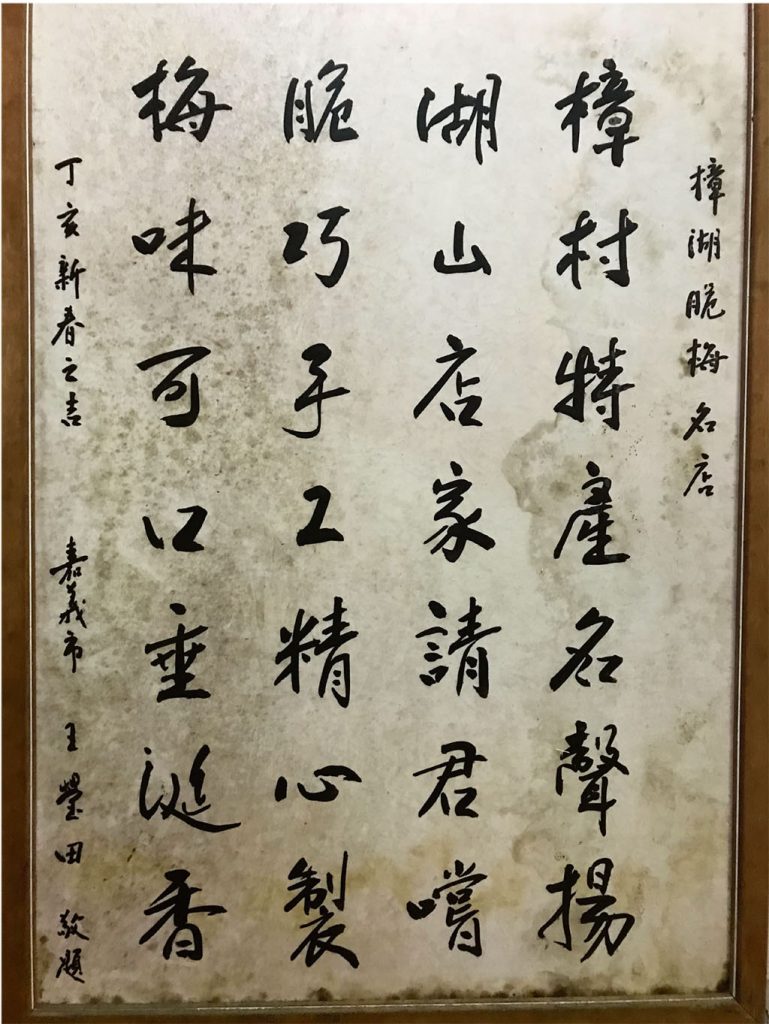 樟湖脆梅名店
樟村特產名聲揚
湖山店家請君嚐
脆巧手工精心製
梅味可口垂涎香
丁亥新春之吉 嘉義市 王 田 敬題